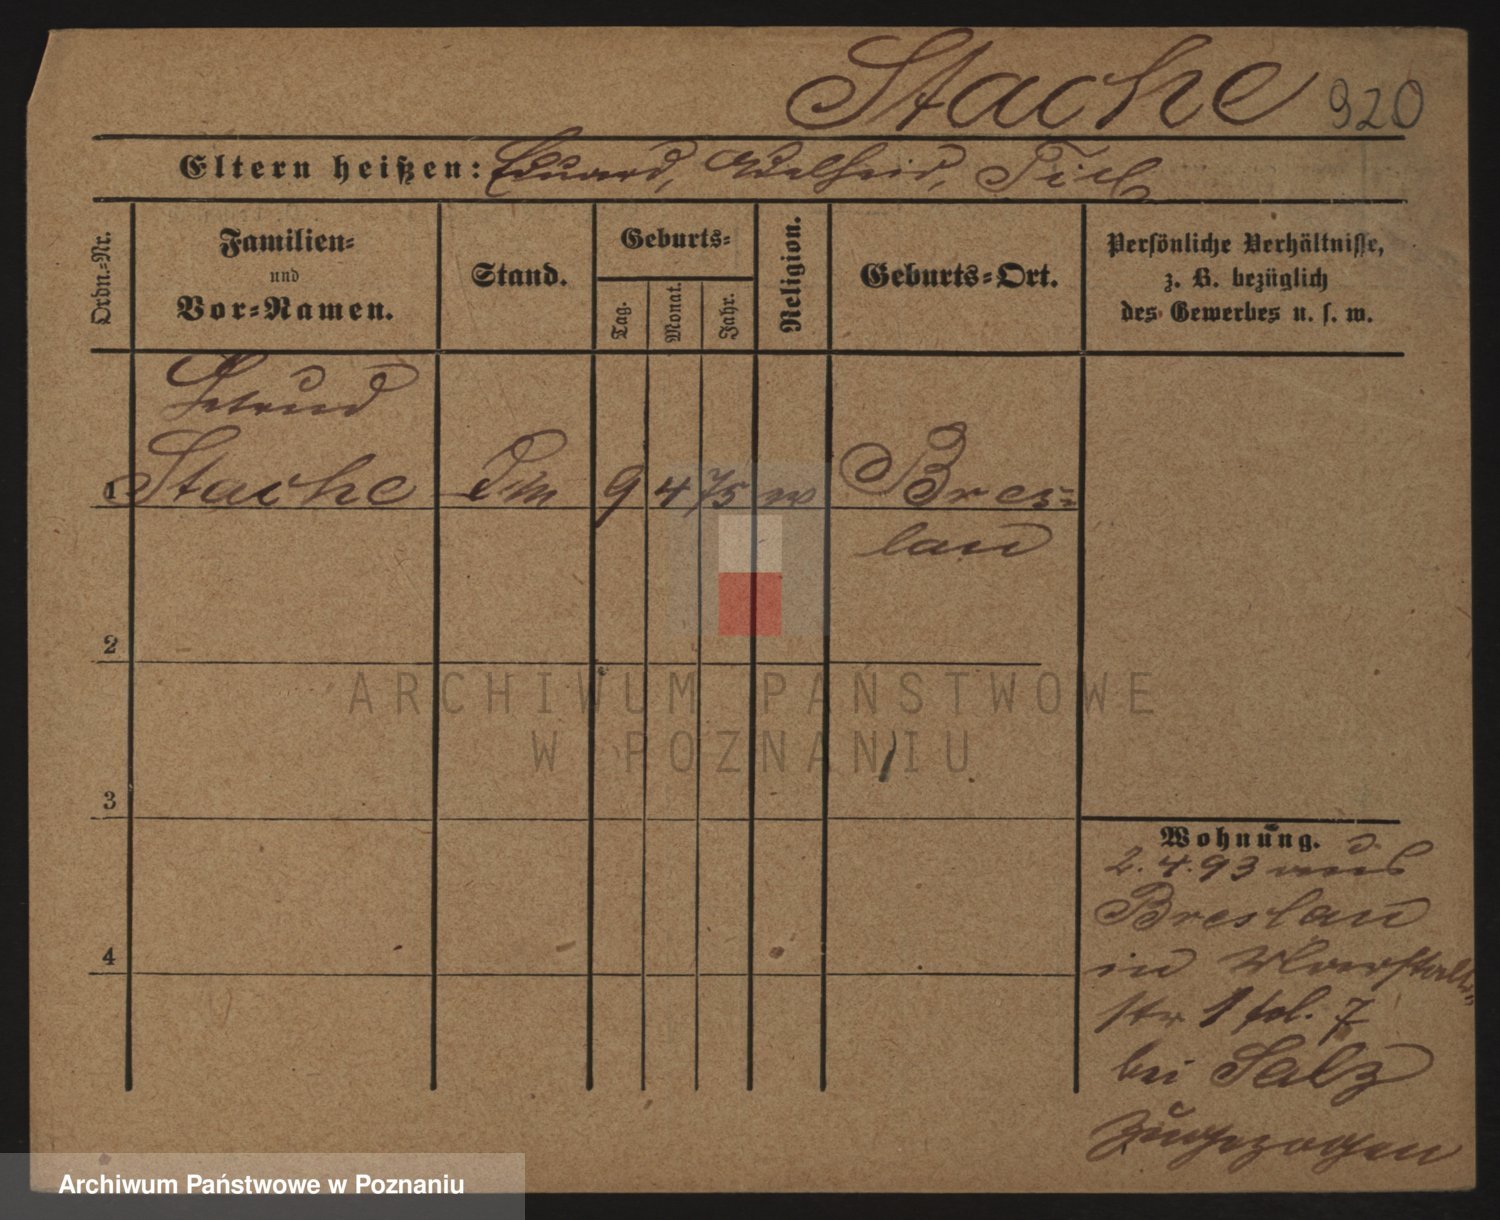 Stache 920
Eltern heißen: Eduard, Adelheid,
Ordn.-Nr.
Familien-
und
Vor-Namen.
Stand.
Geburts-
Tag.
Monat.
Jahr.
Religion.
Geburts-Ort.
Persönliche Verhältnisse,
z. B. bezüglich
des Gewerbes u. s. w.
1 Stache 9 4 75 Bres-
lau
2
3
4
Wohnung.
2.4.93 aus
Breslau
in
str 1 fol. 7
bei Salz
zugezogen
ARCHIWUM PAŃSTWOWE
W POZNANIU
Archiwum Państwowe w Poznaniu